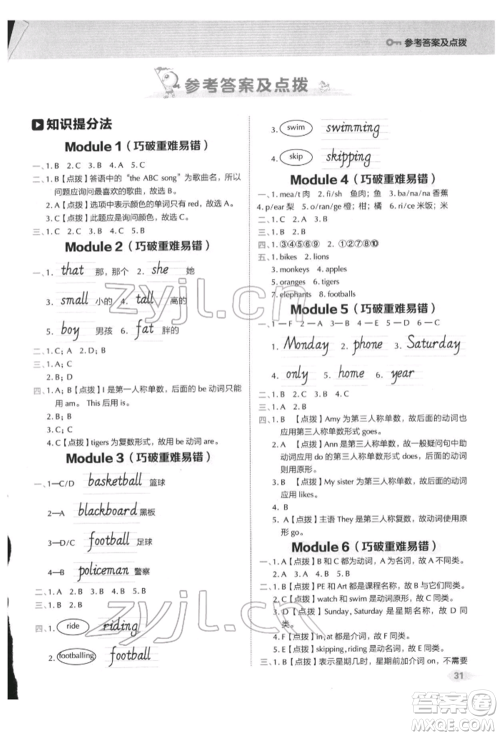 参考答案及点拨
参考答案及点拨
知识提分法
Module 1（巧破重难易错）
一、1. B 2. C 3. A 4. B
二、1. B【点拨】答语中的“the ABC song”为歌曲名，所以
问题应询问最喜欢的歌曲，故选 B。
2. A【点拨】选项中表示颜色的单词只有 red，故选 A。
3. C【点拨】此句是询问颜色，故选 C。
Module 2（巧破重难易错）
一、1. that 那个 2. she 她
3. small 小的 4. tall 高的
5. boy 男孩 6. fat 胖的
二、1. C; A 2. D; B
三、1. C;
2. B; D
四、1. A; B【点拨】I 是第一人称单数，后面的 be 动词只能
用 am。This 后面用 is。
2. A; D
3. B; C
4. C【点拨】tigers 为复数形式，故 be 动词用 are。
Module 3（巧破重难易错）
一、1—C/D basketball 篮球
2—A blackboard 黑板
3—D/C football 足球
4—B policeman 警察
二、1. A 2. B 3. A 4. B
三、1. B 2. C 3. D 4. A
四、1. ride riding
2. footballing football
3. swim swimming
4. skip skipping
Module 4（巧破重难易错）
一、1. mea/t 肉 2. fi/sh 鱼肉；鱼 3. ba/nana 香蕉
4. p/ear 梨 5. o/ran/ge 橙；柑；橘 6. ri/ce 米饭；米
二、1. C 2. A 3. B
三、1. C 2. A 3. D 4. B
四、1. ③④⑤⑥⑨ 2. ①②⑦⑧⑩
五、1. bikes 2. lions
3. monkeys 4. apples
5. oranges 6. pears
7. elephants 8. footballs
Module 5（巧破重难易错）
一、1—F 2—A 3—D 4—C 5—B 6—E
二、1. Monday 2. phone 3. Saturday
4. only 5. home 6. year
三、1. A 2. B 3. B 4. A
四、1. B【点拨】Amy 为第三人称单数，故后面的动词
应用第三人称单数形式 goes。
2. A【点拨】Ann 为第三人称单数，故一般疑问句中助
动词应用 does，后面的动词用原形。
3. B【点拨】My sister 为第三人称单数，故动词应用第
三人称单数形式。
五、1. B
2. A【点拨】主语 They 是第三人称复数，故后面的动词
应用原形。
Module 6（巧破重难易错）
一、1. A【点拨】B 和 C 都为连接词，故 A 不同类。
2. B【点拨】PE and Art 是课程名称，故 B 不同类。
3. C【点拨】wash and swim 是动词，故 C 不同类。
4. D【点拨】Sunday, Saturday 是星期名称，故 D 不
同类。
5. A【点拨】in, at 是介词，故 A 不同类。
6. C【点拨】skipping, riding 是动名词，故 C 不同类。
二、1. C 2. C 3. B
三、1. B【点拨】表示星期几时，星期前加介词 on，不需要
31
zyjl.cn
zyjl.cn
答案圈
MXQE.COM